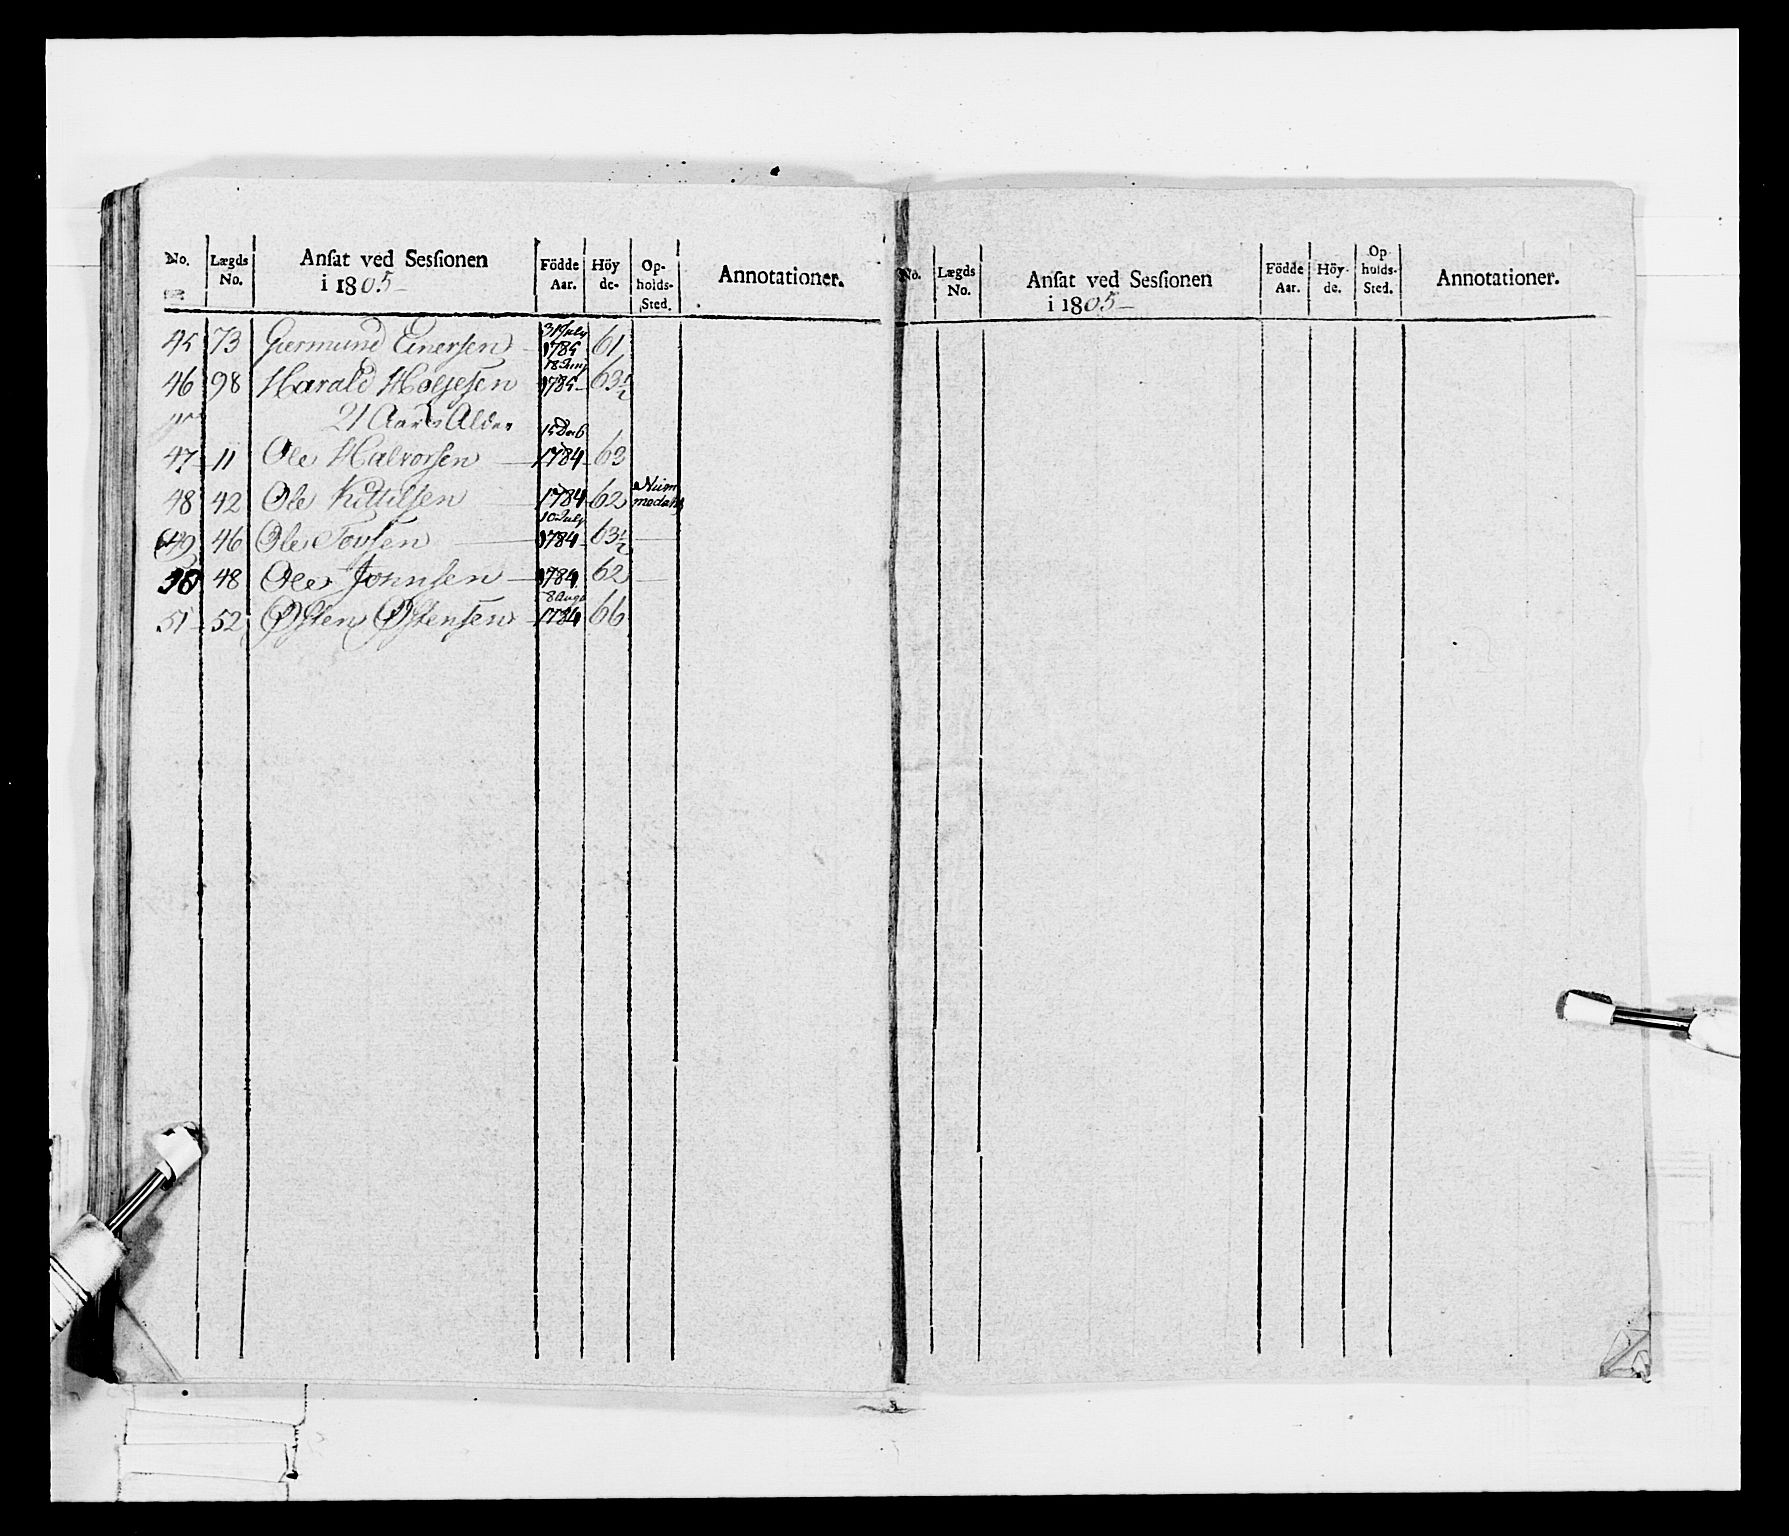 No. Lægds No. Ansat ved Sessionen i 1805 – Födde Aar. Höy de. Op- holds- Sted. Annotationer.
45 73 Giermund Einersen 31 July 1785 61
46 98 Harald Holjesen 18 Junj 1785 63½
21 Aars Alder
47 11 Ole Halvorsen 15 Decb 1784 63
48 42 Ole Kittilsen 1784 62 Num medahl
49 46 Ole Tovsen 10 July 1784 63½
50 48 Ole Johnsen 1784 62
51 52 Østen Østensen 8 Aug 1784 66
No. Lægds No. Ansat ved Sessionen i 1805 – Födde Aar. Höy- de. Op holds- Sted. Annotationer.